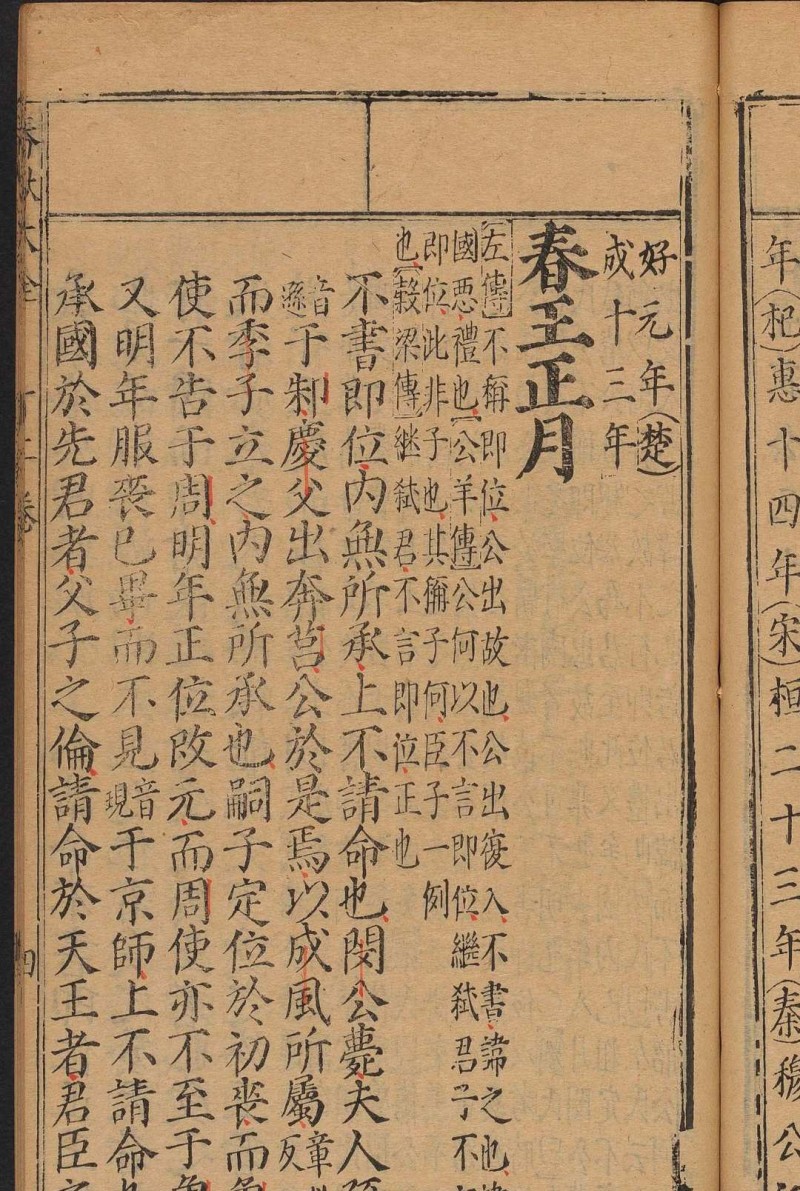 年（杞）惠十四年（宋）桓二十三年（秦）穆公
好元年（楚）
成十三年
春王正月
左傳不稱即位公出故也公出復入不書諱之也諱
國惡禮也公羊傳公何以不言即位繼弒君子不
即位此非子也其稱子何臣子一例
也穀梁傳継弒君不言即位正也
不書即位内無所承上不請命也閔公薨夫人孫
音遜于邾慶父出奔莒公於是焉以成風所屬章
而季子立之内無所承也嗣子定位於初喪而
使不告于周明年正位改元而周使亦不至于
又明年服喪已畢而不見音現于京師上不請命
承國於先君者父子之倫請命於天王者君臣
春秋大全
卷
四